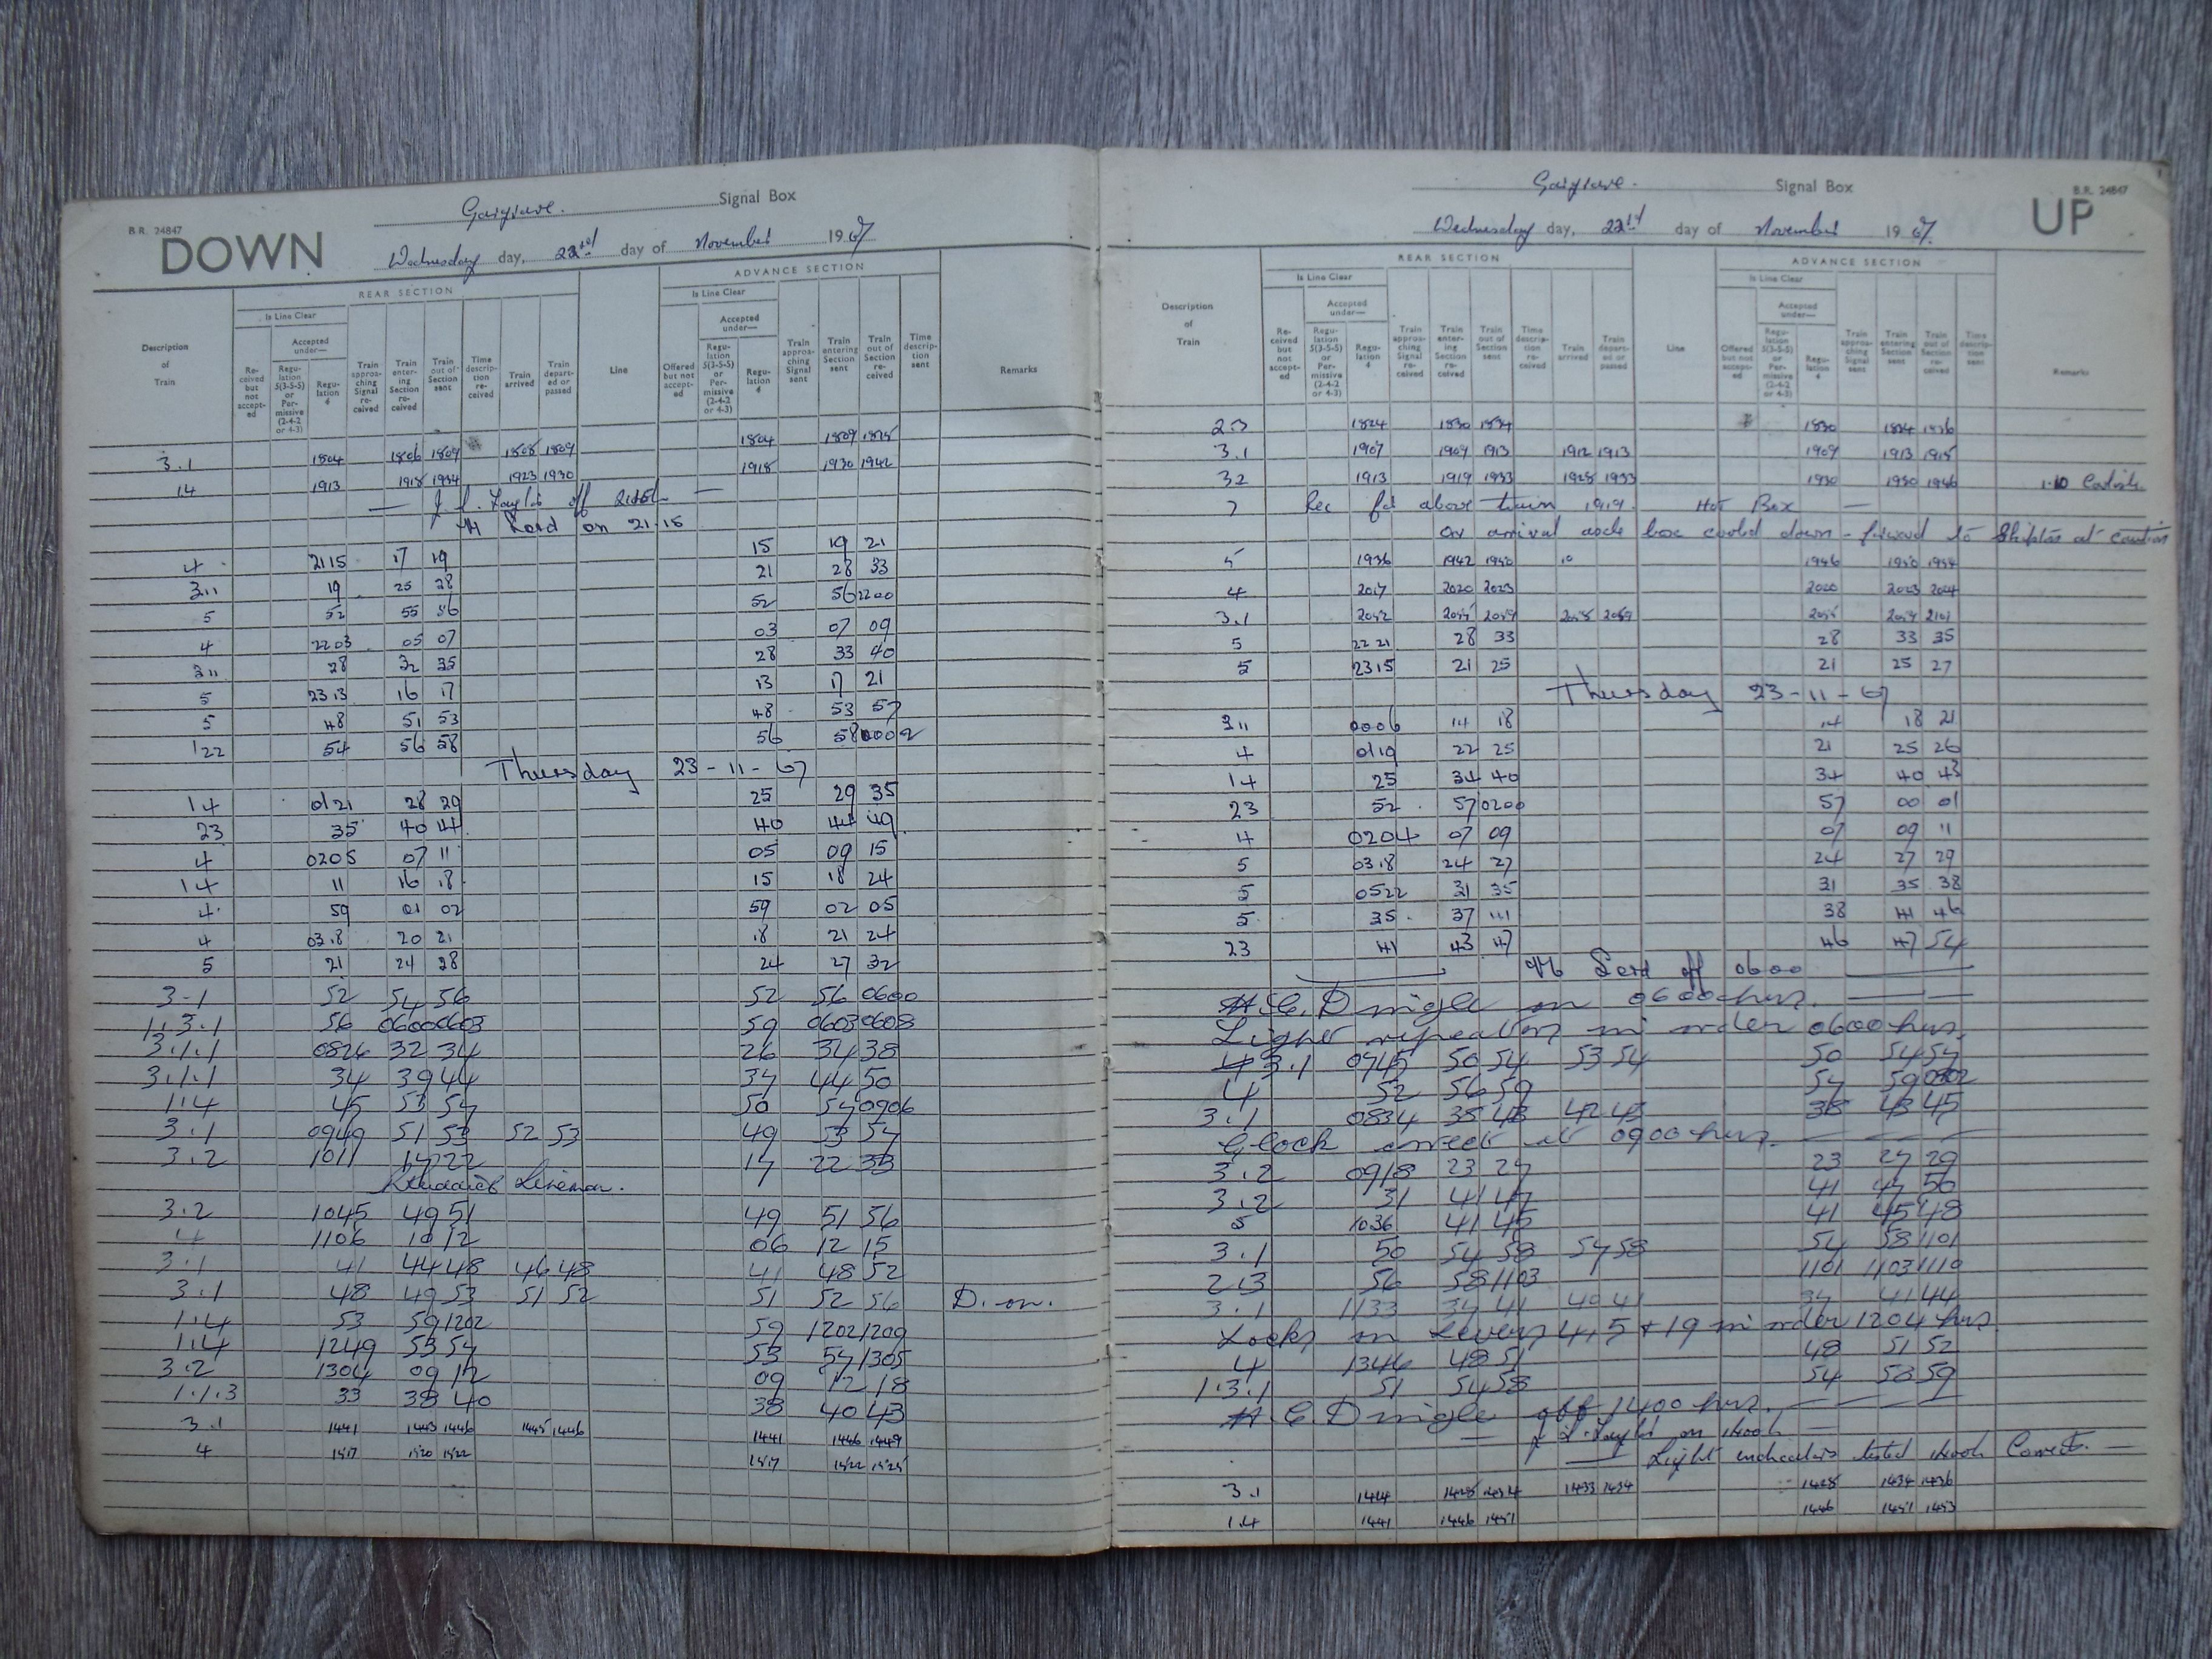 B.R. 24847
DOWN
Gargrave. Signal Box
Wednesday day, 22nd day of November 1967
REAR SECTION
ADVANCE SECTION
Is Line Clear
Is Line Clear
Accepted under—
Accepted under—
Description of Train
Re-ceived but not accept-ed
Regu-lation 5(3-5-5) or Per-missive (2-4-2 or 4-3)
Regu-lation 4
Train approa-ching Signal re-ceived
Train enter-ing Section re-ceived
Train out of Section sent
Time descrip-tion re-ceived
Train arrived
Train depart-ed or passed
Line
Offered but not accept-ed
Regu-lation 5(3-5-5) or Per-missive (2-4-2 or 4-3)
Regu-lation 4
Train approa-ching Signal sent
Train entering Section sent
Train out of Section re-ceived
Time descrip-tion sent
Remarks
3.1 1804 1806 1809 1808 1809 1804 1809 1815
14 1913 1918 1934 1923 1930 1918 1930 1942
off
Lord on 21.15
4 2115 17 19 15 19 21
311 19 25 28 21 28 33
5 52 55 56 52 56 2200
4 2203 05 07 03 07 09
311 28 32 35 28 33 40
5 2313 16 17 13 17 21
5 48 51 53 48 53 57
122 54 56 58 56 58 0002
Thursday 23-11-67
14 0121 28 29 25 29 35
23 35 40 44 40 44 49
4 0205 07 11 05 09 15
14 11 16 18 15 18 24
4 59 01 02 59 02 05
4 0318 20 21 18 21 24
5 21 24 28 24 27 32
3-1 52 54 56 52 56 0600
1.3.1 56 0600 0603 59 0603 0608
3.1.1 0826 32 34 26 34 38
3.1.1 34 39 44 37 44 50
1.4 45 53 57 50 57 0906
3.1 0949 51 53 52 53 49 53 57
3.2 1011 17 22 17 22 33
Lineman.
3.2 1045 49 51 49 51 56
4 1106 10 12 06 12 15
3.1 41 44 48 46 48 41 48 52
3.1 48 49 53 51 52 51 52 56 D. on.
1.4 53 59 1202 59 1202 1209
1.4 1249 53 57 53 57 1305
3.2 1304 09 12 09 12 18
1.1.3 33 38 40 38 40 43
3.1 1441 1443 1446 1445 1446 1441 1446 1449
4 1517 1520 1522 1517 1522 1525
Gargrave. Signal Box
B.R. 24847
UP
Wednesday day, 22nd day of November 1967.
REAR SECTION
ADVANCE SECTION
Is Line Clear
Is Line Clear
Accepted under—
Accepted under—
Description of Train
Re-ceived but not accept-ed
Regu-lation 5(3-5-5) or Per-missive (2-4-2 or 4-3)
Regu-lation 4
Train approa-ching Signal re-ceived
Train enter-ing Section re-ceived
Train out of Section sent
Time descrip-tion re-ceived
Train arrived
Train depart-ed or passed
Line
Offered but not accept-ed
Regu-lation 5(3-5-5) or Per-missive (2-4-2 or 4-3)
Regu-lation 4
Train approa-ching Signal sent
Train entering Section sent
Train out of Section re-ceived
Time descrip-tion sent
Remarks
2.3 1824 1830 1834 1830 1834 1836
3.1 1907 1909 1913 1912 1913 1909 1913 1915
32 1913 1919 1933 1928 1933 1930 1930 1946 1.10 Carlisle
7 Rec for above train 1919. Hot Box —
on arrival axle box cooled down - forward to Skipton at caution
5 1936 1942 1950 1946 1950 1954
4 2017 2020 2023 2020 2023 2024
3.1 2052 2055 2059 2058 2059 2055 2059 2101
5 2221 28 33 28 33 35
5 2315 21 25 21 25 27
Thursday 23-11-67
311 0006 14 18 14 18 21
4 0119 22 25 21 25 26
14 25 34 40 34 40 43
23 52 57 0200 57 00 01
4 0204 07 09 07 09 11
5 0318 24 27 24 27 29
5 0522 31 35 31 35 38
5 35 37 41 38 41 46
23 41 43 47 46 47 54
Lord off 0600
H.C. Dningle on 0600 hrs.
Light repeaters in order 0600 hrs.
3.1 0745 50 54 53 54 50 54 57
4 52 56 59 57 59 0802
3.1 0834 38 43 42 43 38 43 45
Clock correct at 0900 hrs.
3.2 0918 23 27 23 27 29
3.2 31 41 47 41 47 56
5 1036 41 45 41 45 48
3.1 50 54 58 57 58 54 58 1101
2.3 56 58 1103 1101 1103 1110
3.1 1133 37 41 40 41 37 41 44
Locks on Levers 4, 5 & 19 in order 1204 hrs
4 1346 48 51 48 51 52
1.3.1 51 54 58 54 58 59
H.C. Dningle off 1400 hrs.
on 1400h
Light indicators tested 1400h Correct. —
3.1 1424 1428 1434 1433 1434 1428 1434 1436
1.4 1441 1446 1451 1446 1451 1453